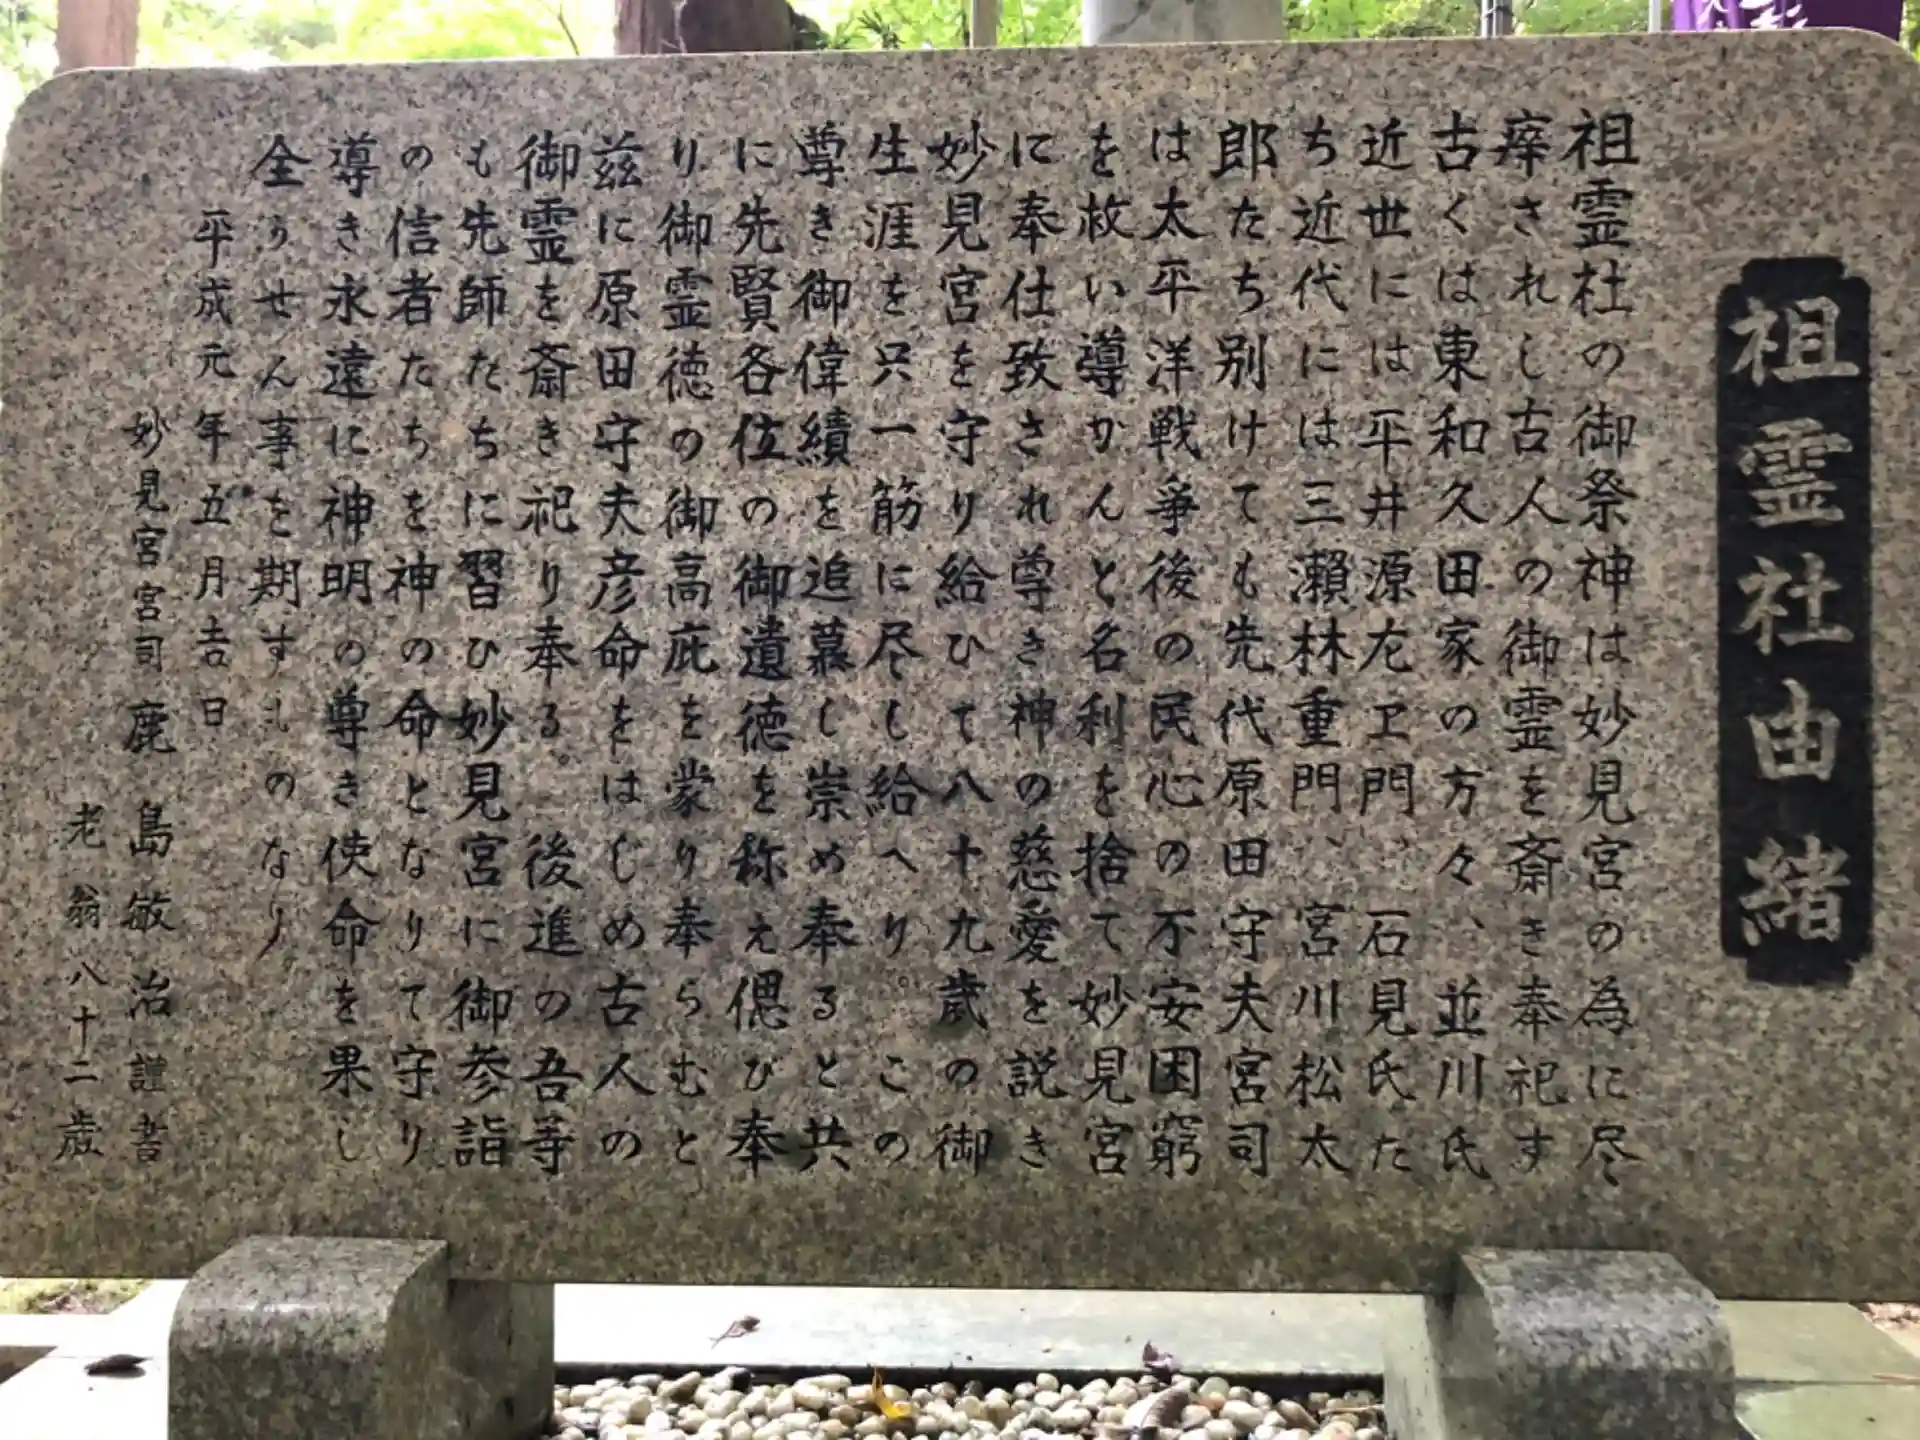 祖霊社由緒
祖霊社の御祭神は妙見宮の為に尽
瘁されし古人の御霊を斎き奉祀す
古くは東和久田家の方々、並川氏
近世には平井源左ヱ門、石見氏た
ち近代には三瀬林重門、宮川松太
郎たち別けても先代原田守夫宮司
は太平洋戦争後の民心の不安困窮
を救い導かんと名利を捨て妙見宮
に奉仕致され尊き神の慈愛を説き
妙見宮を守り給ひて八十九歳の御
生涯を只一筋に尽し給へり。この
尊き御偉績を追慕し崇め奉ると共
に先賢各位の御遺徳を称え偲び奉
り御霊徳の御高庇を蒙り奉らむと
茲に原田守夫彦命をはじめ古人の
御霊を斎き祀り奉る。後進の吾等
も先師たちに習ひ妙見宮に御参詣
の信者たちを神の命となりて守り
導き永遠に神明の尊き使命を果し
全うせん事を期すものなり
平成元年五月吉日
妙見宮宮司 鹿島敏治謹書
老翁八十二歳